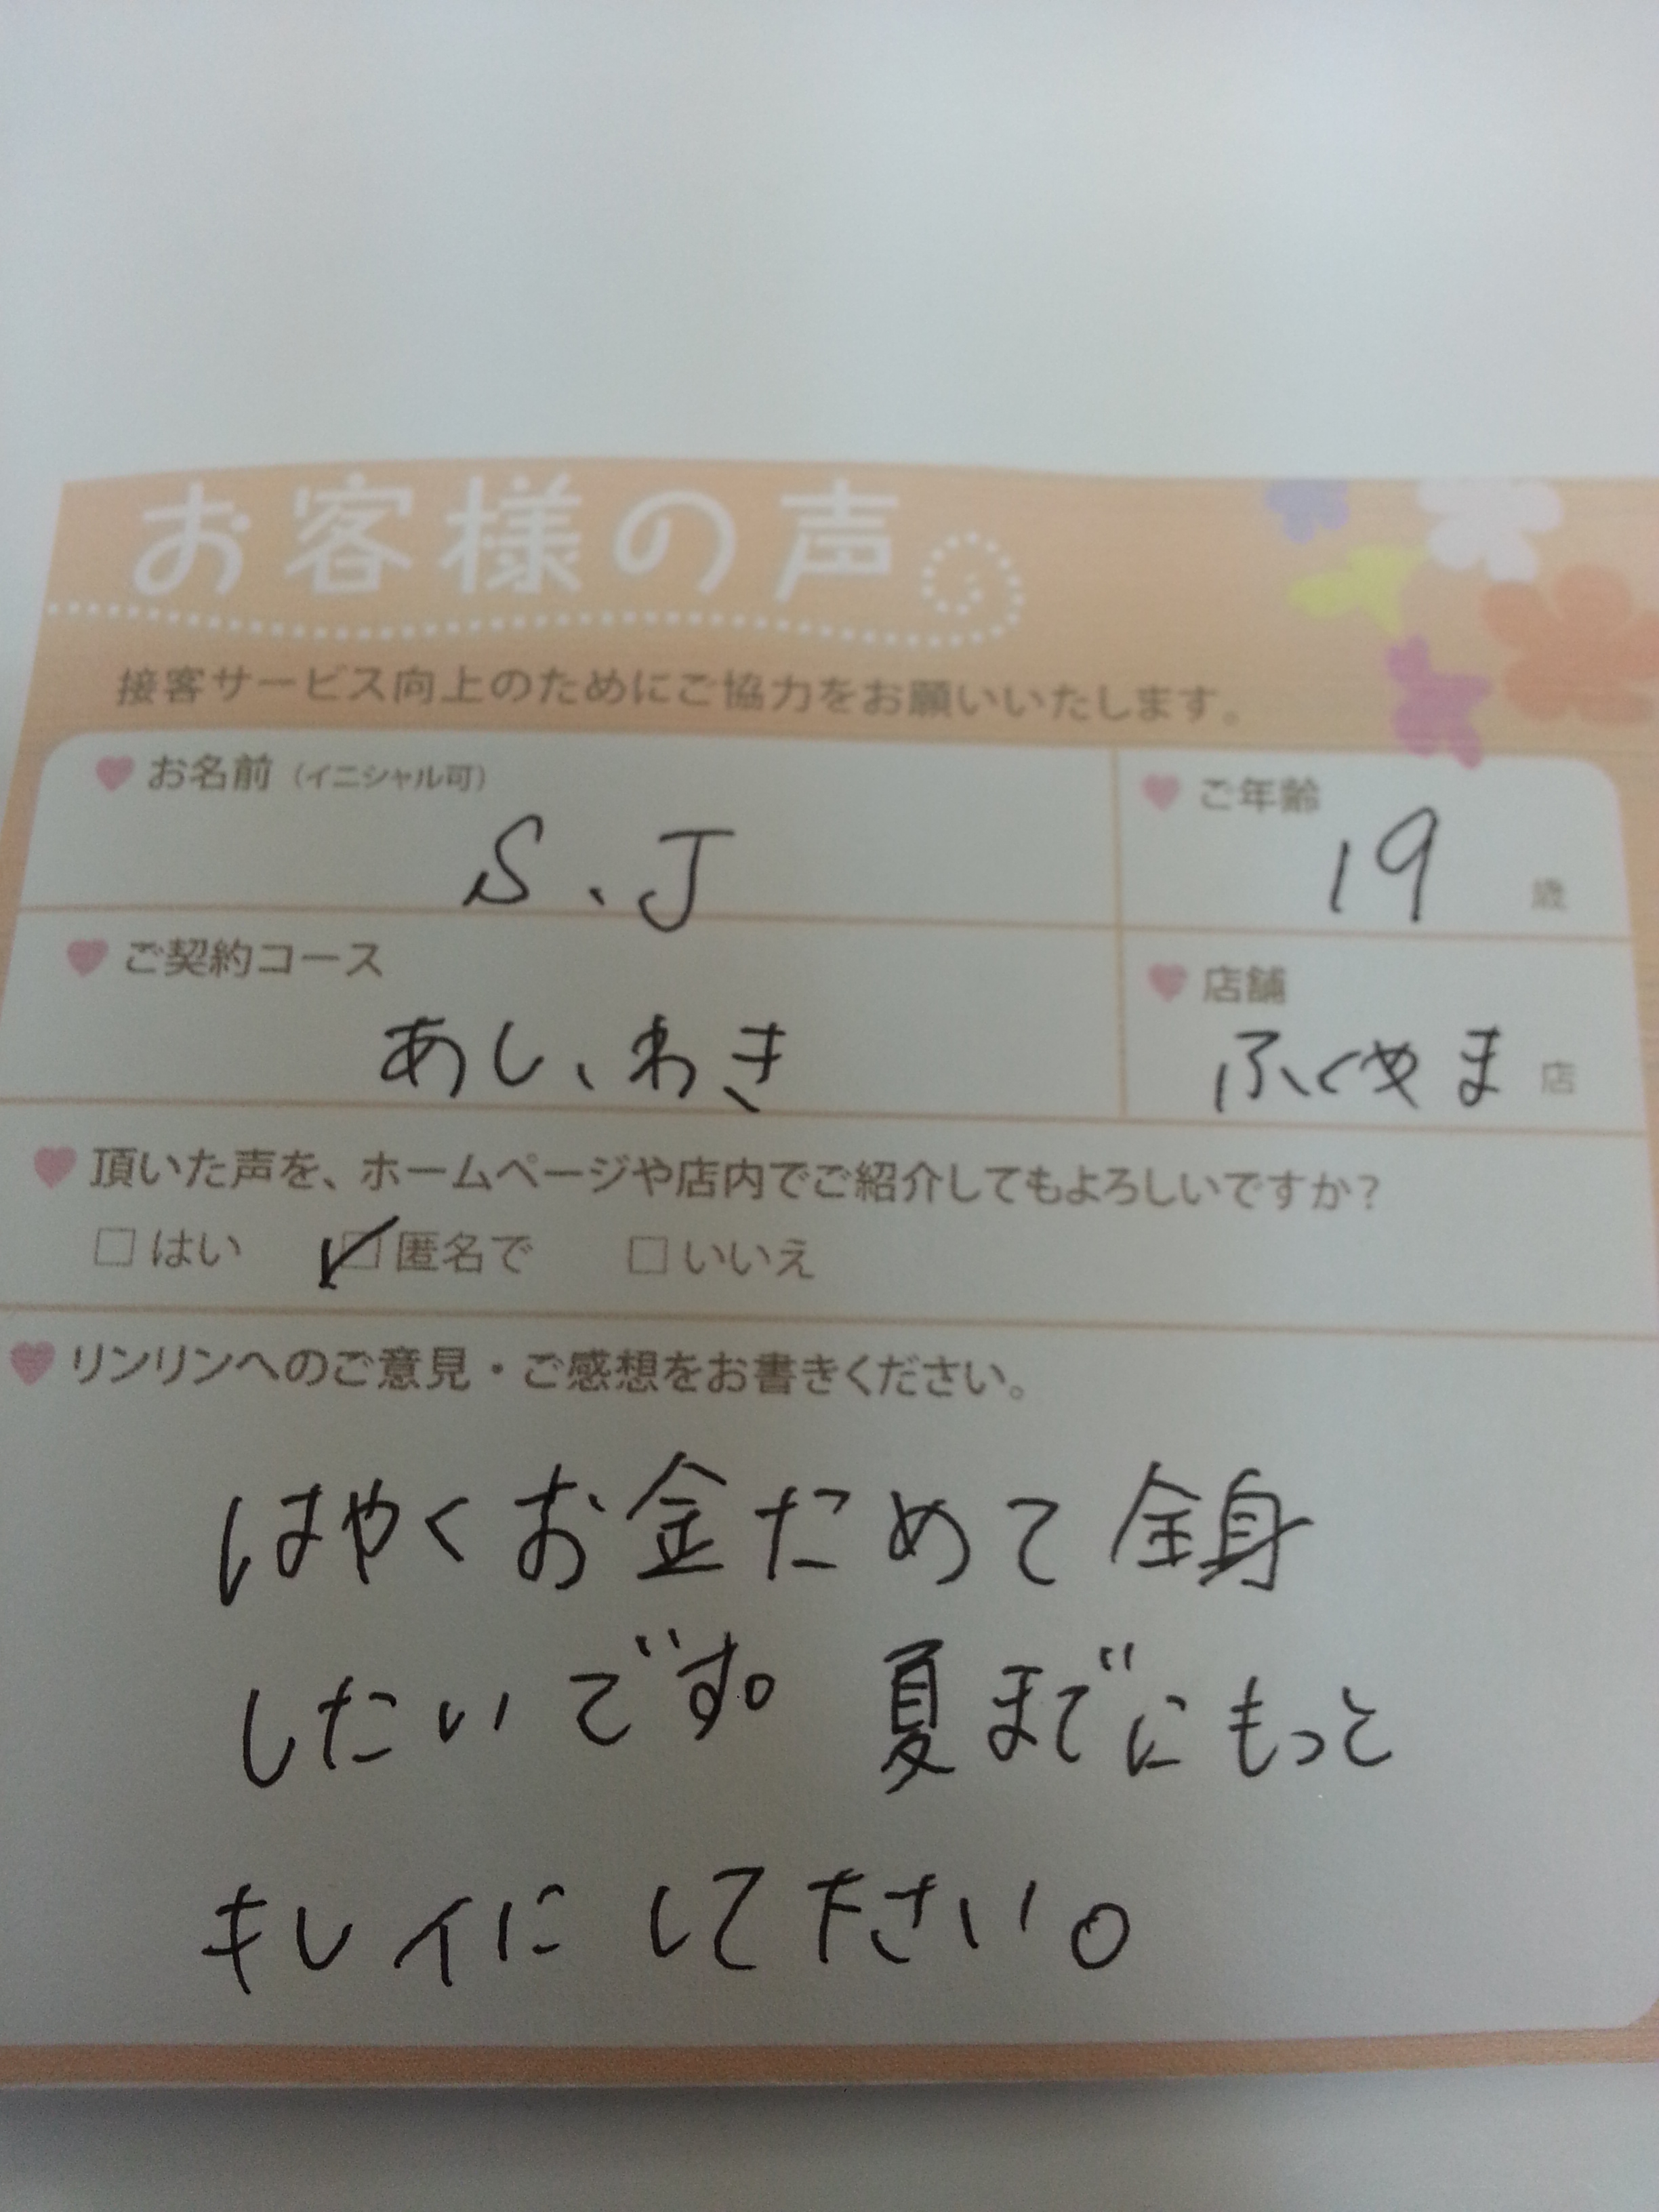 お客様の声
接客サービス向上のためにご協力をお願いいたします。
お名前（イニシャル可）
S.J
ご年齢
19歳
ご契約コース
あし、わき
店舗
ふくやま店
頂いた声を、ホームページや店内でご紹介してもよろしいですか?
□はい ☑匿名で □いいえ
リンリンへのご意見・ご感想をお書きください。
はやくお金ためて全身
したいです。夏までにもっと
キレイにして下さい。